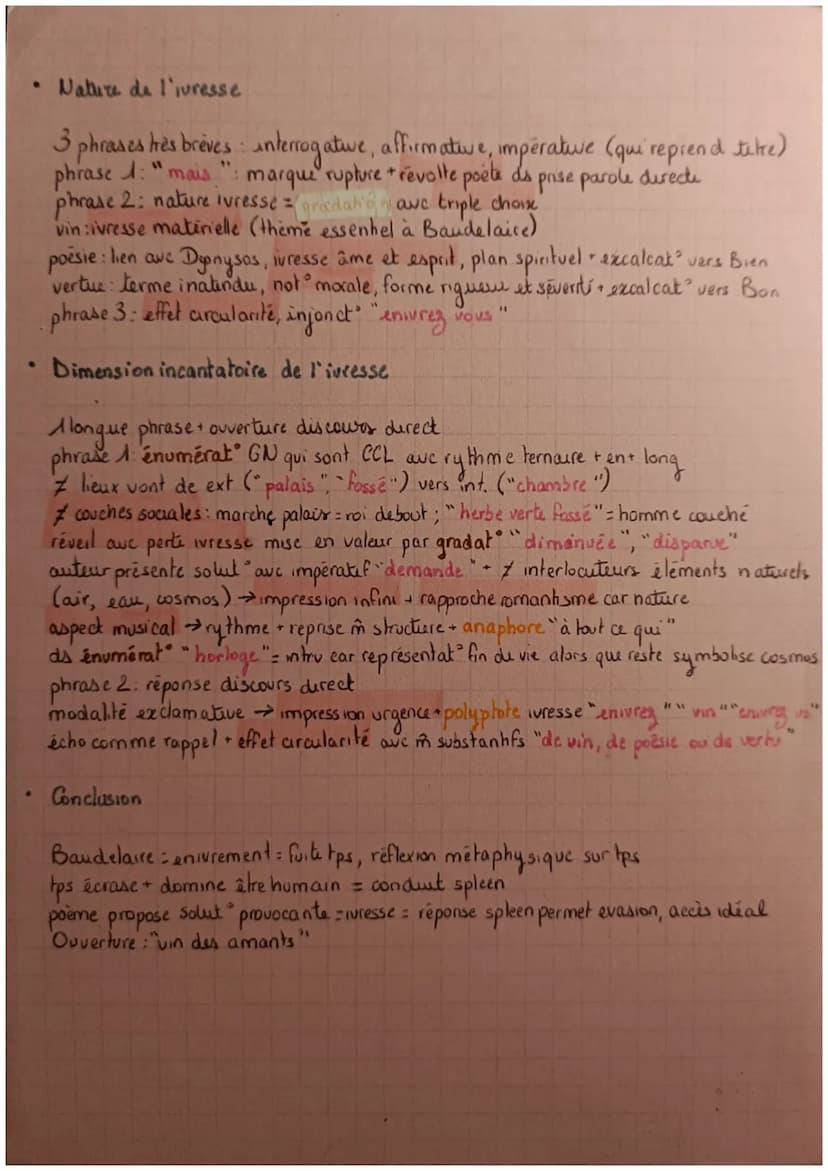 • Nature de l'ivresse
3 phrases très brèves : interrogative, affirmative, impérative (qui reprend titre)
phrase 1: "mais": marque rupture + révolte poète ds prise parole directe
phrase 2: nature ivresse = gradation avc triple choix
vin : ivresse matérielle (thème essentiel à Baudelaire)
poésie : lien avc Dyonysos, ivresse âme et esprit, plan spirituel + excalcat° vers Bien
vertue : terme inatindu, not° morale, forme rigueur et sévérité + excalcat° vers Bon
phrase 3 : effet circularité, injonct° "enivrez vous"
• Dimension incantatoire de l'ivresse
1 longue phrase + ouverture discours direct
phrase 1: énumérat° GN qui sont CCL avc rythme ternaire + en + long
≠ lieux vont de ext ("palais", "fossé") vers int. ("chambre")
≠ couches sociales : marche palais = roi debout ; "herbe verte fossé" = homme couché
réveil avc perte ivresse mise en valeur par gradat° "diminuée", "disparue"
auteur présente solut° avc impératif "demande" + ≠ interlocuteurs éléments naturels
(air, eau, cosmos) → impression infini + rapproche romantisme car nature
aspect musical → rythme + reprise m̂ structure + anaphore "à tout ce qui"
ds énumérat° "horloge" = intru car représentat° fin de vie alors que reste symbolise cosmos
phrase 2 : réponse discours direct
modalité exclamative → impression urgence + polyptote ivresse "enivrez" "vin" "enivrez vs"
écho comme rappel + effet circularité avc m̂ substantifs "de vin, de poésie ou de vertu"
• Conclusion
Baudelaire : enivrement = fuite tps, réflexion métaphysique sur tps
tps écrase + domine être humain = conduit spleen
poème propose solut° provocante = ivresse = réponse spleen permet evasion, accès idéal
Ouverture : "vin des amants"